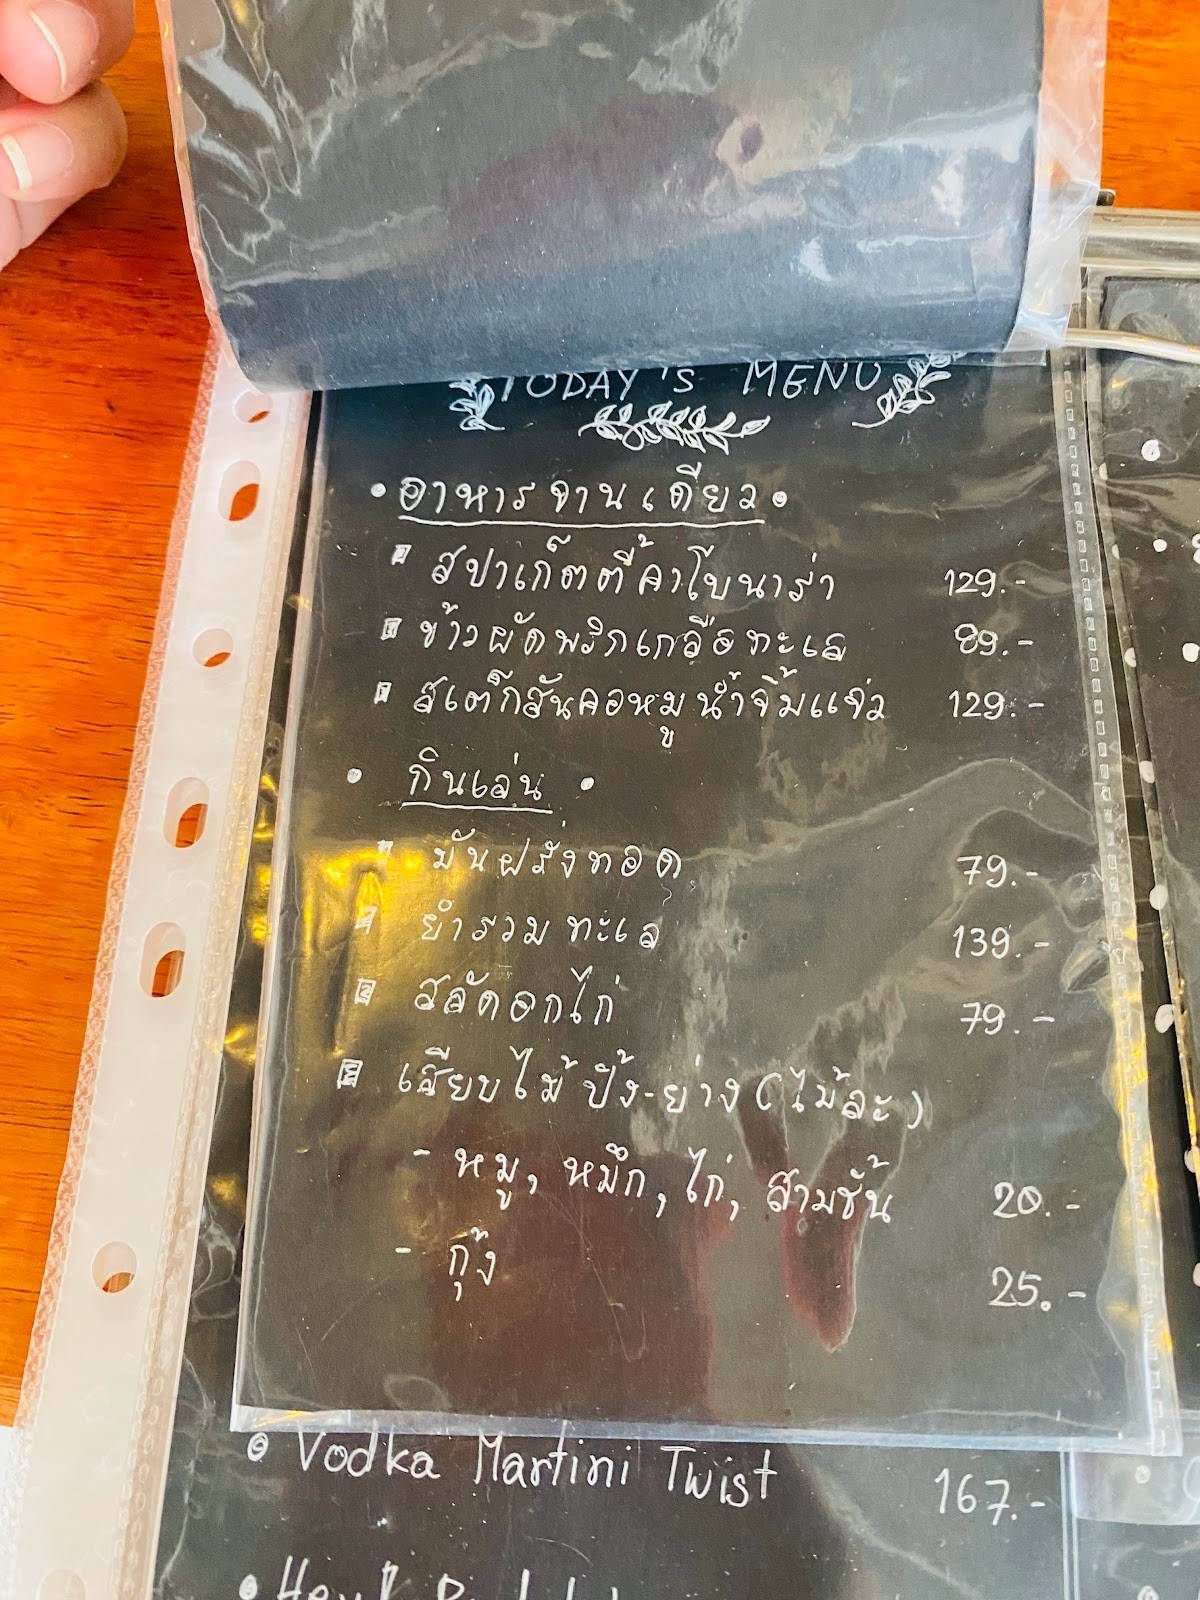 TODAY'S MENU
• อาหารจานเดียว •
สปาเก็ตตี้คาโบนาร่า 129.-
ข้าวผัดพริกเกลือทะเล 89.-
สเต็กสันคอหมูน้ำจิ้มแจ่ว 129.-
• กินเล่น •
มันฝรั่งทอด 79.-
ยำรวมทะเล 139.-
สลัดอกไก่ 79.-
เสียบไม้ ปิ้ง-ย่าง (ไม้ละ)
- หมู, หมึก, ไก่, สามชั้น 20.-
- กุ้ง 25.-
Vodka Martini Twist 167.-